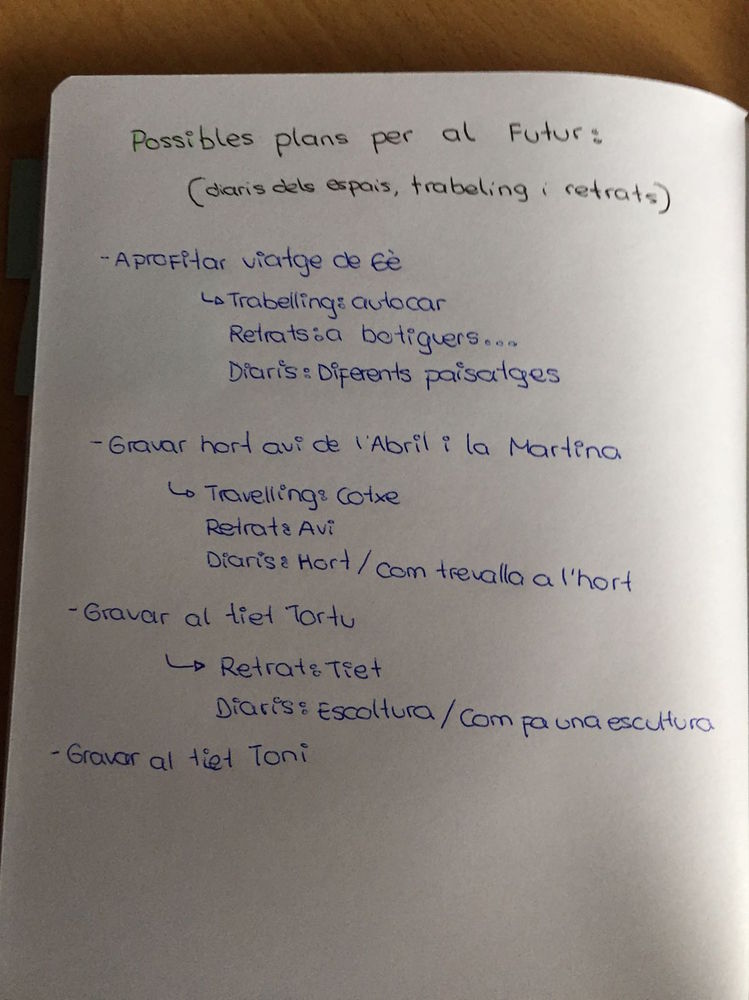 Possibles plans per al Futur:
(diaris dels espais, trabeling i retrats)
- Aprofitar viatge de 6è
↳ Trabelling: autocar
Retrats: a botiguers...
Diaris: Diferents paisatges
- Gravar hort avi de l'Abril i la Martina
↳ Travelling: Cotxe
Retrat: Avi
Diaris: Hort / Com trevalla a l'hort
- Gravar al tiet Tortu
↳ Retrat: Tiet
Diaris: Escoltura / Com fa una escultura
- Gravar al tiet Toni